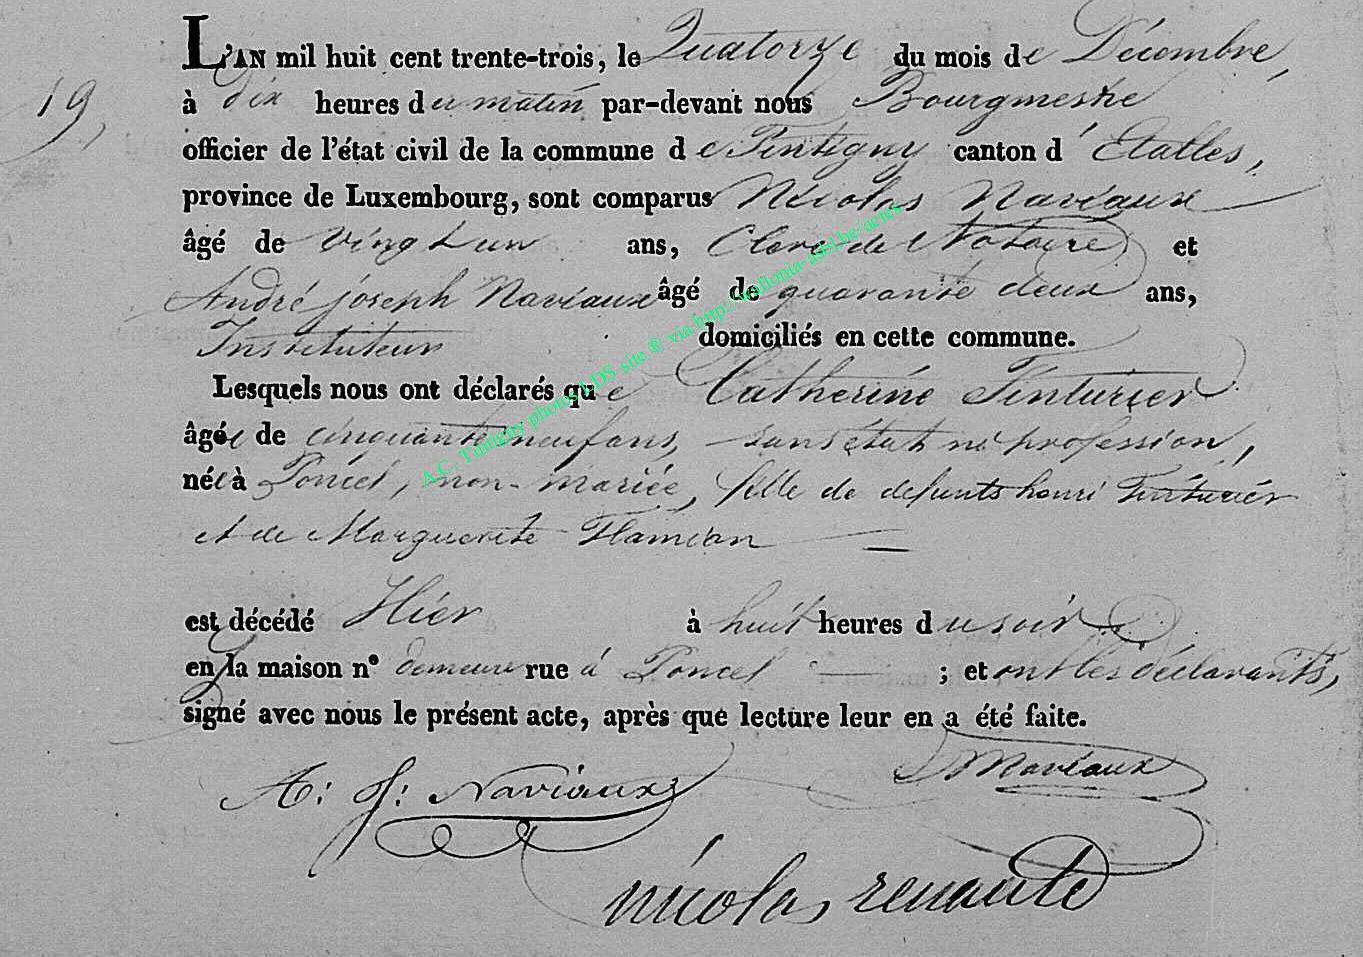 L'AN mil huit cent trente-trois, le Quatorze du mois de Décembre,
19,
à dix heures du matin par-devant nous Bourgmestre
officier de l'état civil de la commune de Tintigny canton d'Etalles,
province de Luxembourg, sont comparus Nicolas Naviaux
âgé de vingt un ans, Clerc de Notaire et
André joseph Naviaux âgé de quarante deux ans,
Instituteur domiciliés en cette commune.
Lesquels nous ont déclarés que Catherine Tinturier
âgée de cinquante neuf ans, sans état ni profession,
née à Poncel, non-mariée, fille de defunts henri Tinturier
et de Marguerite Flamion
est décédé Hier à huit heures du soir
en la maison nº demeure rue à Poncel ; et ont les déclarants,
signé avec nous le présent acte, après que lecture leur en a été faite.
A: J: Naviaux Naviaux
nicolas renauld
A.C. Tintigny photos LDS site ® via http://wallonia-asbl.be/actes